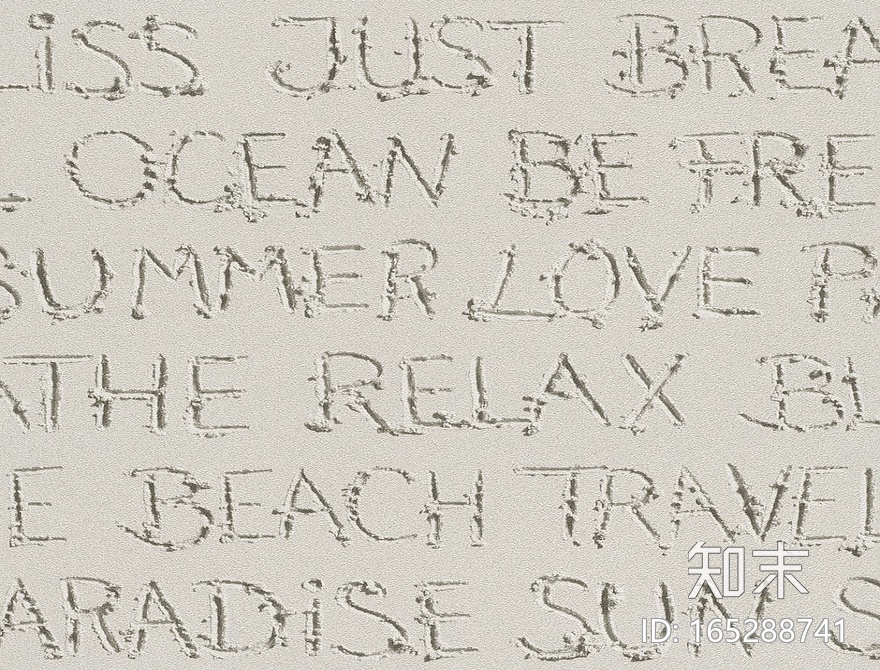 LiSS JUST BREA
L OCEAN BE FREE
SUMMER LOVE PA
ATHE RELAX BL
E BEACH TRAVEL
ARADiSE SUN S
知末
ID: 165288741